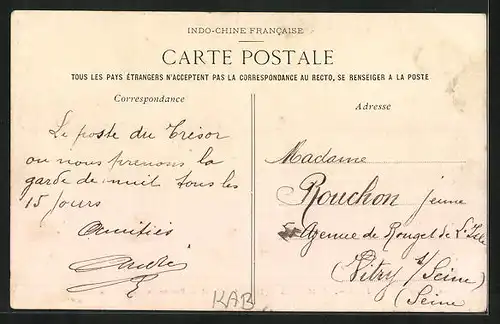 INDO-CHINE FRANÇAISE
CARTE POSTALE
TOUS LES PAYS ÉTRANGERS N'ACCEPTENT PAS LA CORRESPONDANCE AU RECTO, SE RENSEIGER A LA POSTE
Correspondance
Le poste du Trésor
ou nous prenons la
garde de nuit tous les
15 jours
Amitiés
André
Adresse
Madame
Rouchon jeune
Avenue de Rouget de L'Isle
Vitry s/Seine
(Seine)
KAB